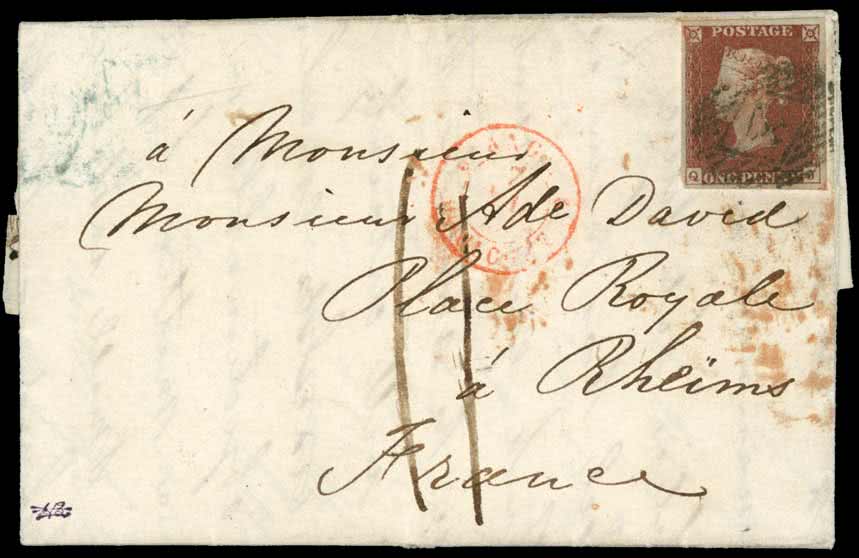 POSTAGE
ONE PENNY
à Monsieur
Monsieur Ade David
Place Royale
à Rheims
France